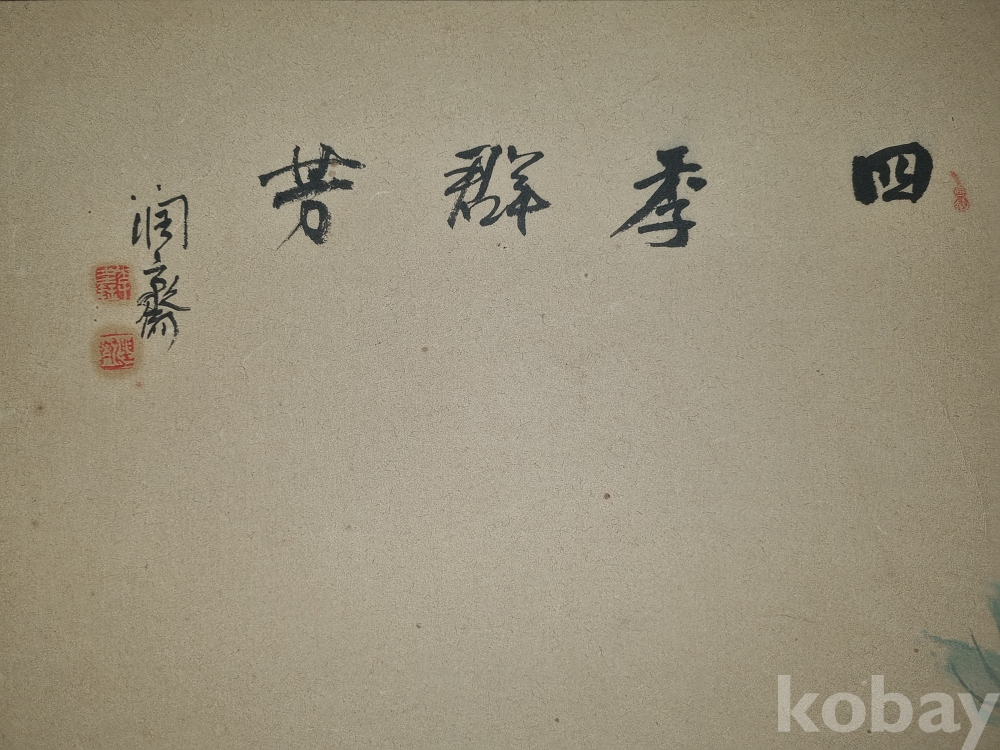 四季群芳
润斋
kobay